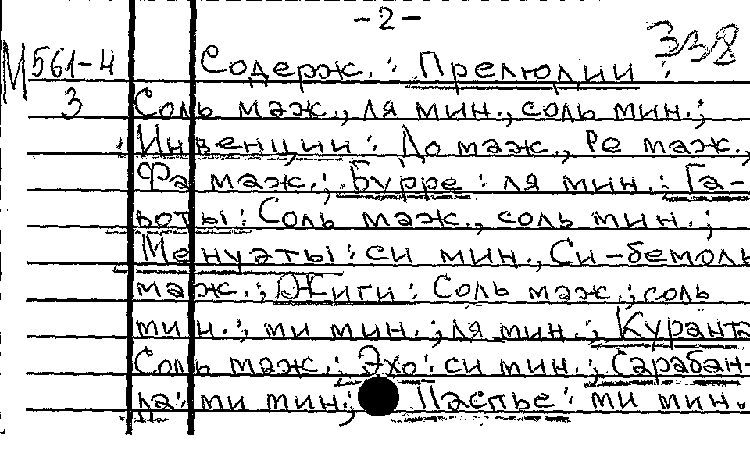 -2-
338
М561-4 Содерж.: Прелюдии:
3 Соль маж., ля мин., соль мин.;
Инвенции: До маж., Ре маж.,
Фа маж.; Бурре: ля мин.; Га-
воты: Соль маж., соль мин.;
Менуэты: си мин., Си-бемоль
маж.; Жиги: Соль маж.; соль
мин.; ми мин.; ля мин.; Куранта
Соль маж.; Эхо: си мин.; Сарабан-
да: ми мин; Паспье: ми мин.